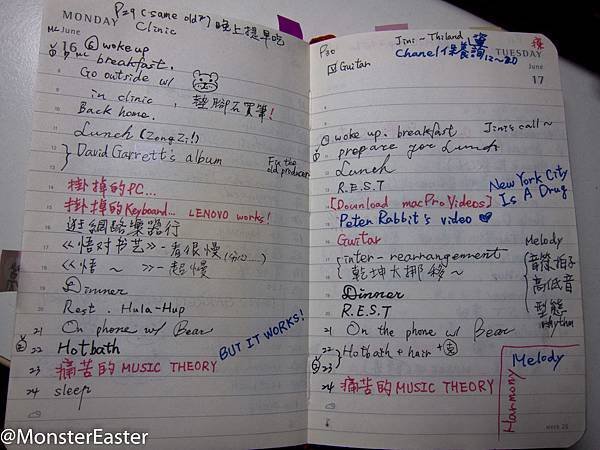 MONDAY
June
16
P29 (same old?) 晚上提早吃
Clinic
wake up
breakfast.
Go outside w/
in clinic , 墊腳石買筆!
Back home.
Lunch (ZongZi!)
David Garrett's album
Fix the old producer
14 掛掉的PC...
15 掛掉的Keyboard... LENOVO works!
16 逛網路樂器行
17 <<悟对书艺>> - 看很慢
18 <<悟 ~ >> - 超慢
19 Dinner
20 Rest . Hula-Hup
21 On phone w/ Bear
BUT IT WORKS!
22 Hotbath
23 痛苦的 MUSIC THEORY
24 sleep
P30
Jini ~ Thiland
Chanel 保養 12~20
TUESDAY
June
17
Guitar
wake up. breakfast Jini's call~
prepare for Lunch
Lunch
R.E.S.T
New York City Is A Drug
[Download macPro Videos]
Peter Rabbit's video
Guitar
inter-rearrangement
乾坤大挪移~
Melody
音符拍子
高低音
型態
rhythm
Dinner
R.E.S.T
21 On the phone w/ Bear
22 Hotbath + hair +
23
24 痛苦的 MUSIC THEORY
Melody
Harmony
week 25
@MonsterEaster